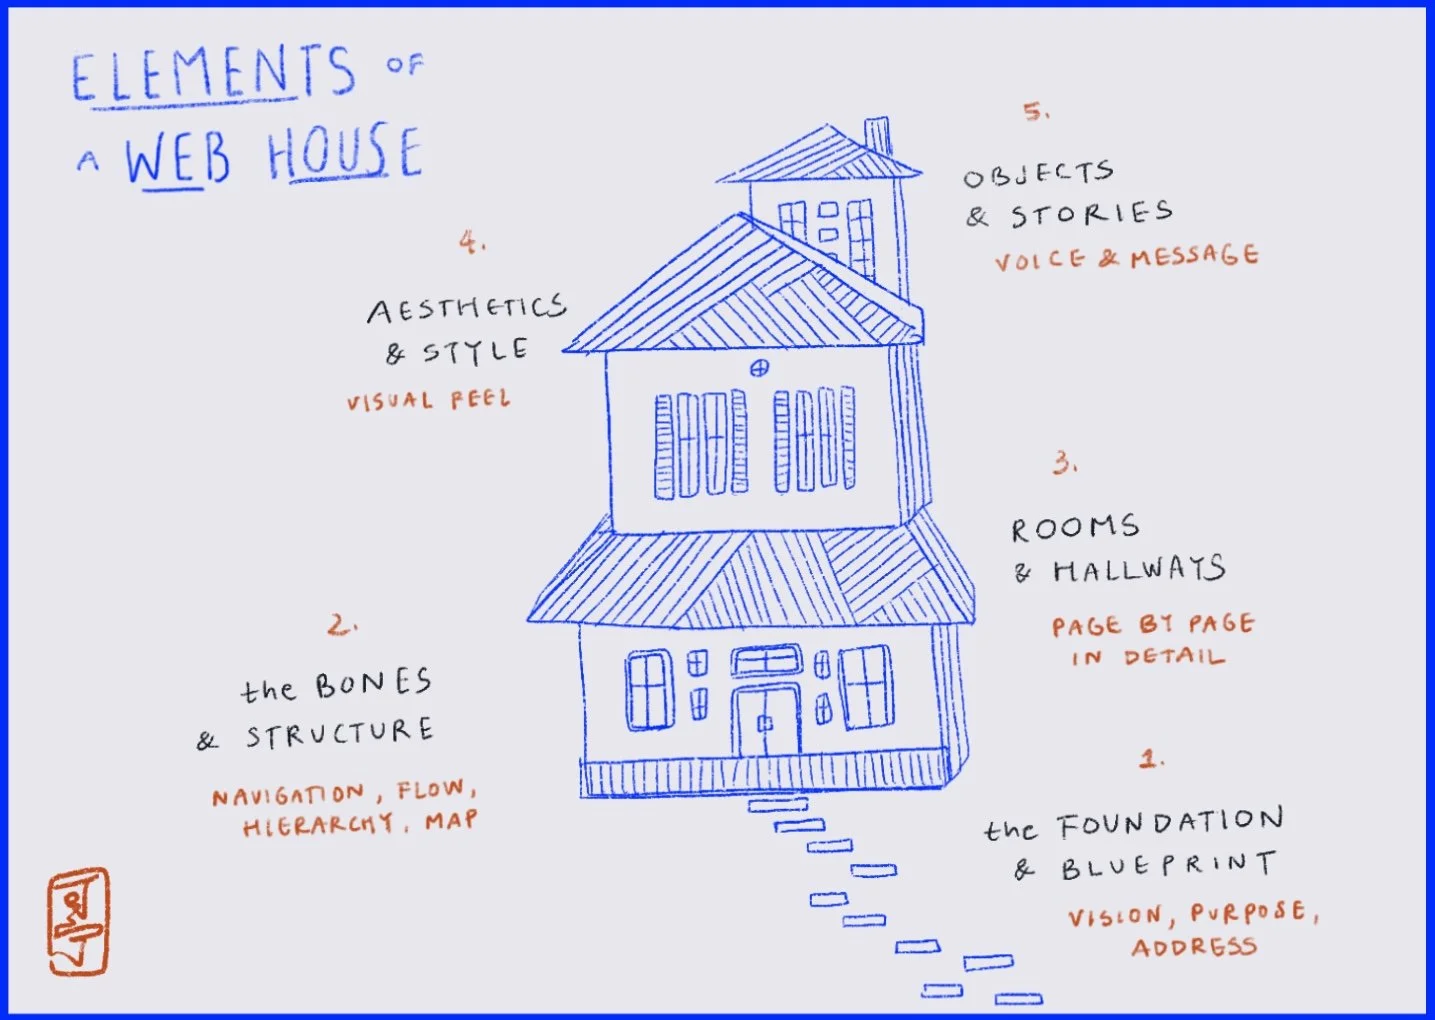 ELEMENTS OF
A WEB HOUSE
5.
OBJECTS
& STORIES
VOICE & MESSAGE
4.
AESTHETICS
& STYLE
VISUAL FEEL
3.
ROOMS
& HALLWAYS
PAGE BY PAGE
IN DETAIL
2.
the BONES
& STRUCTURE
NAVIGATION, FLOW,
HIERARCHY, MAP
1.
the FOUNDATION
& BLUEPRINT
VISION, PURPOSE,
ADDRESS